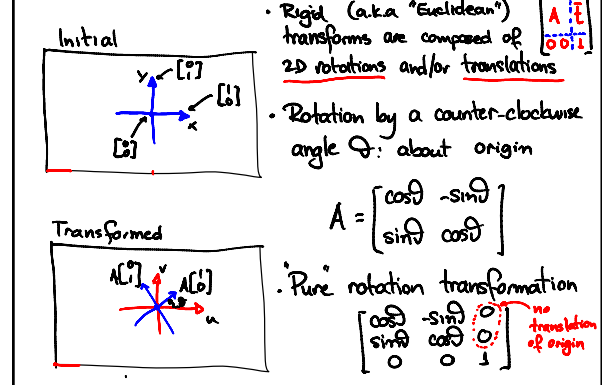 Initial
y
[0 1]
[1 0]
x
[0 0]
Transformed
A[0 1]
v
A[1 0]
θ
u
• Rigid (a.k.a "Euclidean")
transforms are composed of
2D rotations and/or translations
[A t̄
0 0 1]
• Rotation by a counter-clockwise
angle θ: about origin
A = [cosθ -sinθ
sinθ cosθ]
• "Pure" rotation transformation
[cosθ -sinθ 0
sinθ cosθ 0
0 0 1]
no
translation
of origin